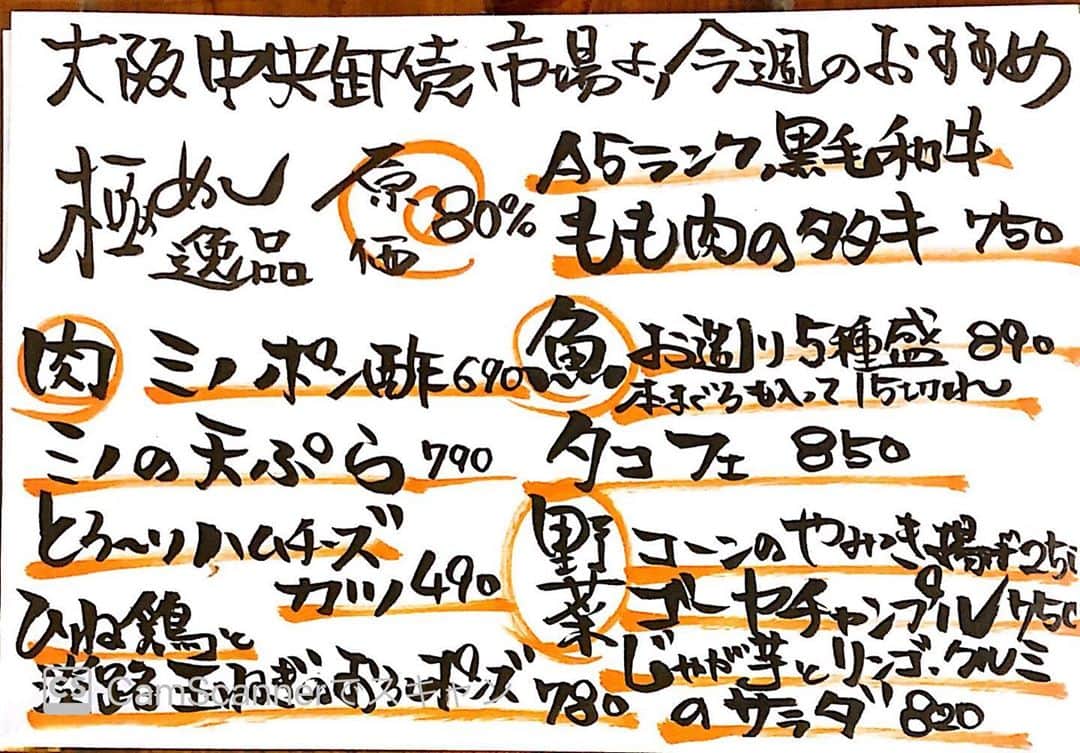 大阪中央卸売市場より今週のおすすめ
極めし
逸品
原価 80%
A5ランク黒毛和牛
もも肉のタタキ 750
肉 ミノポン酢 690
ミノの天ぷら 790
とろ〜りハムチーズ
カツ 490
ひね鶏と
ねぎのポンポンズ 780
魚 お造り5種盛 890
本まぐろも入って15切れ〜
タコフェ 850
野菜 コーンのやみつき揚げ 250
ゴーヤチャンプル 750
じゃが芋とリンゴ、クルミ
のサラダ 820
CS CamScannerでスキャン